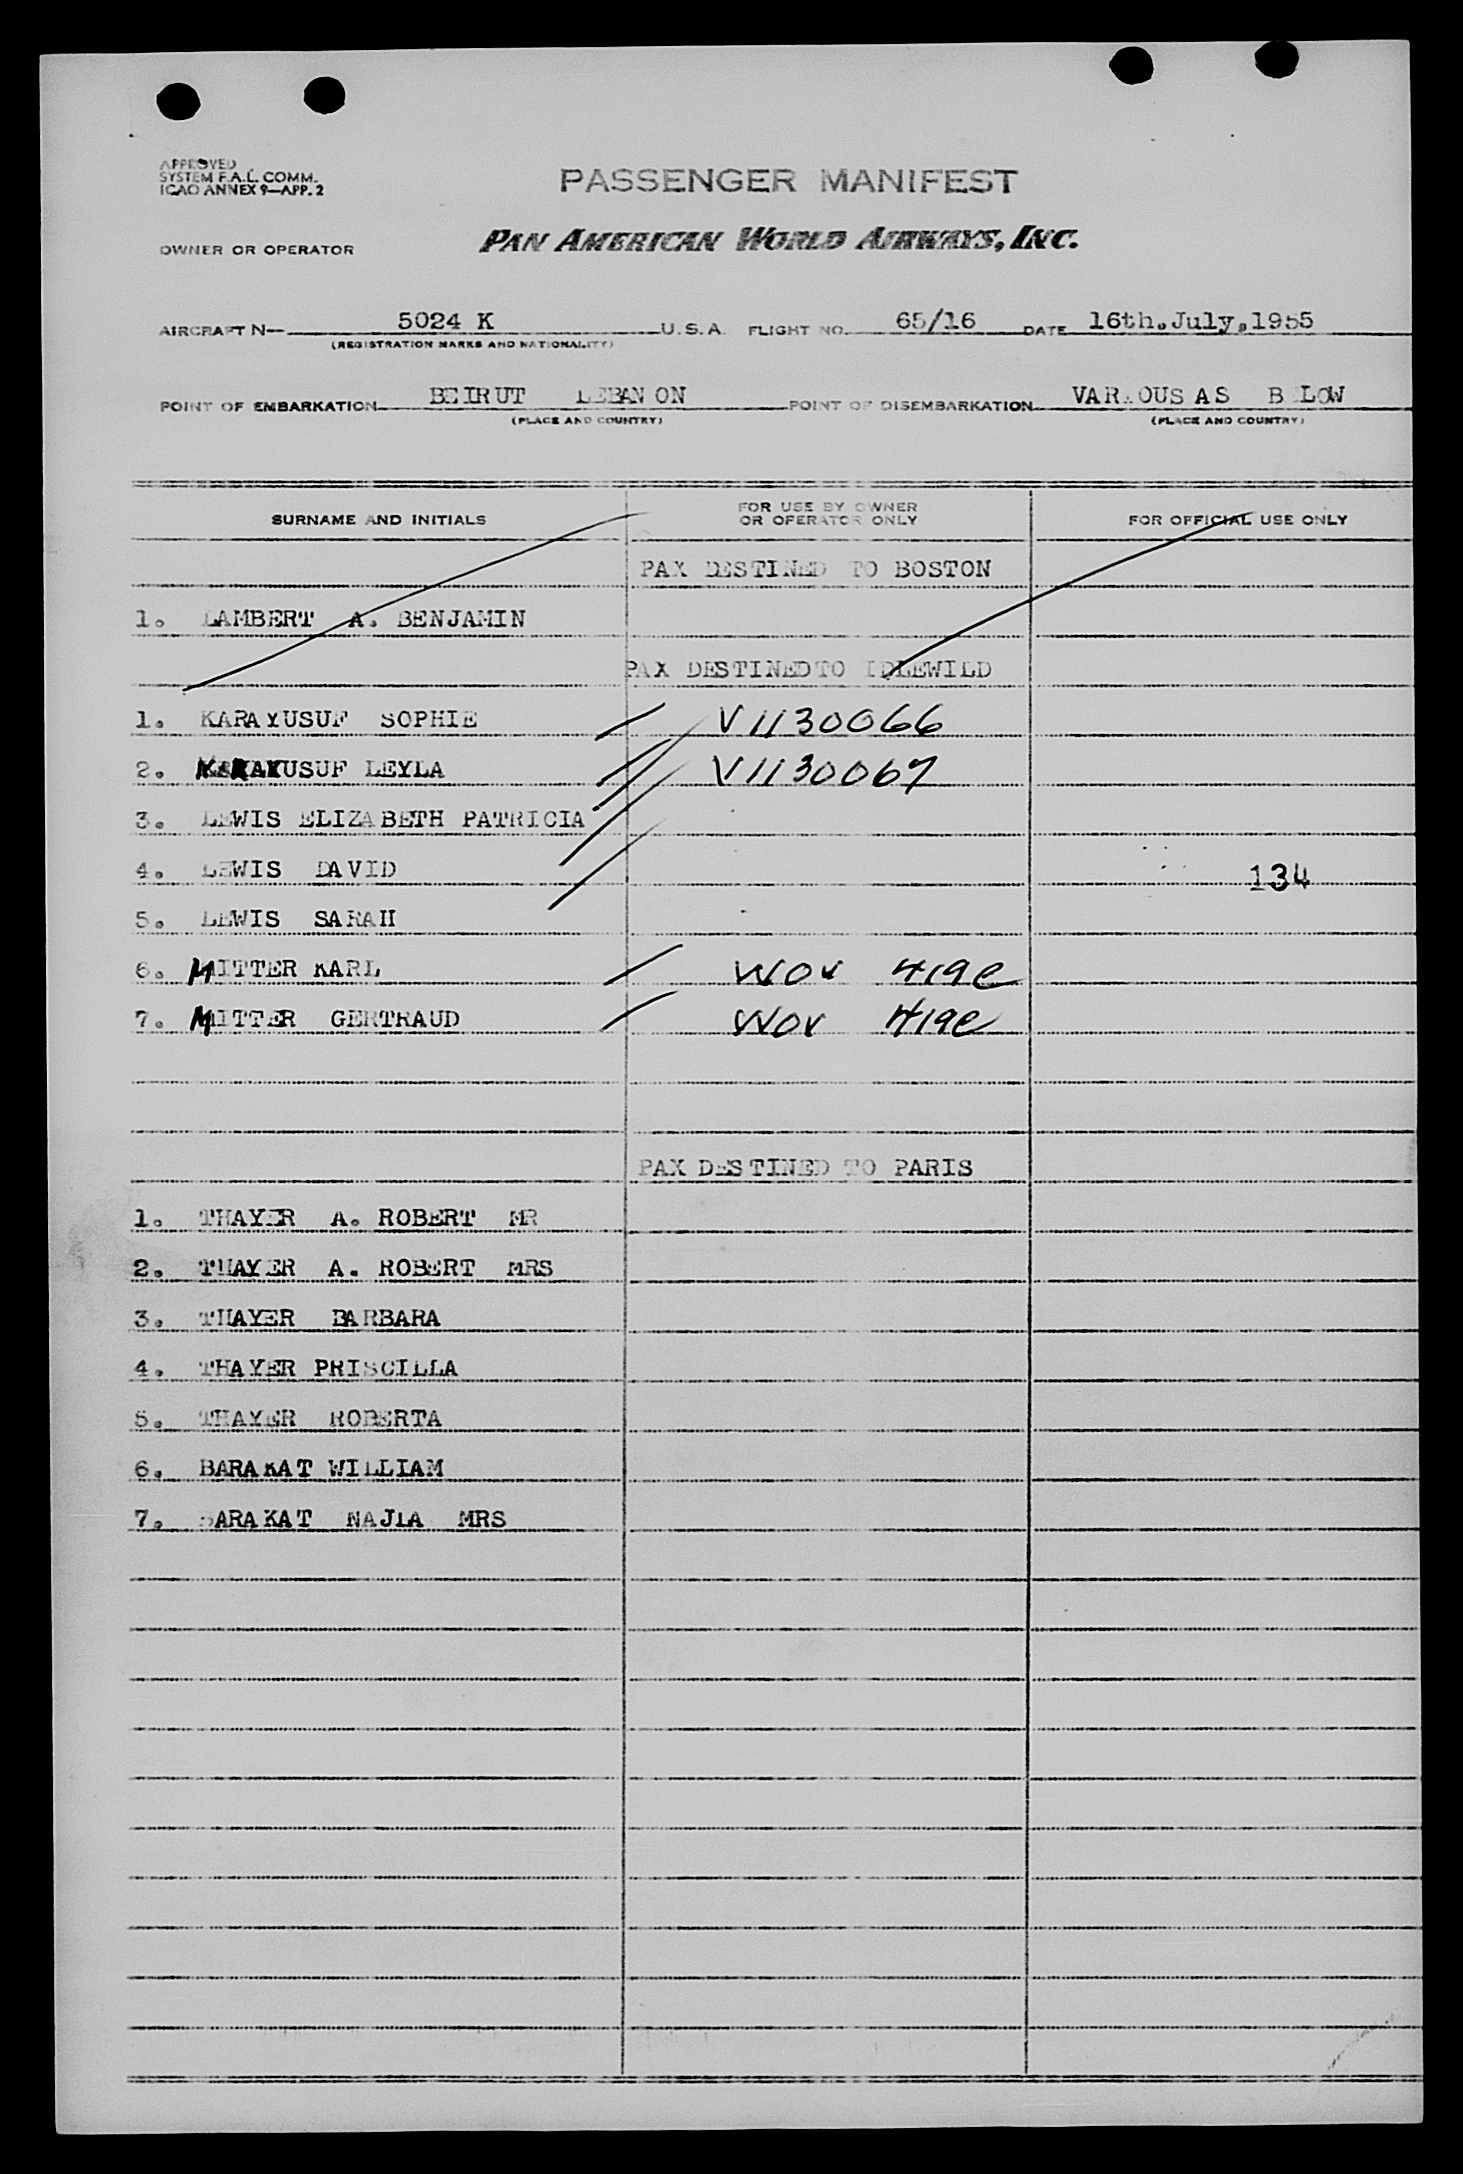 APPROVED
SYSTEM F.A.L. COMM.
ICAO ANNEX 9—APP. 2
PASSENGER MANIFEST
OWNER OR OPERATOR PAN AMERICAN WORLD AIRWAYS, INC.
AIRCRAFT N— 5024 K U.S.A. FLIGHT NO. 65/16 DATE 16th.July,1955
(REGISTRATION MARKS AND NATIONALITY)
POINT OF EMBARKATION BEIRUT LEBANON POINT OF DISEMBARKATION VARIOUS AS BELOW
(PLACE AND COUNTRY) (PLACE AND COUNTRY)
SURNAME AND INITIALS FOR USE BY OWNER OR OPERATOR ONLY FOR OFFICIAL USE ONLY
PAX DESTINED TO BOSTON
1. LAMBERT A. BENJAMIN
PAX DESTINED TO IDLEWILD
1. KARAYUSUF SOPHIE V1130066
2. KARAYUSUF LEYLA V1130067
3. LEWIS ELIZABETH PATRICIA
4. LEWIS DAVID 134
5. LEWIS SARAH
6. MITTER KARL WOV 419e
7. MITTER GERTRAUD WOV 419e
PAX DESTINED TO PARIS
1. THAYER A. ROBERT MR
2. THAYER A. ROBERT MRS
3. THAYER BARBARA
4. THAYER PRISCILLA
5. THAYER ROBERTA
6. BARAKAT WILLIAM
7. BARAKAT NAJLA MRS